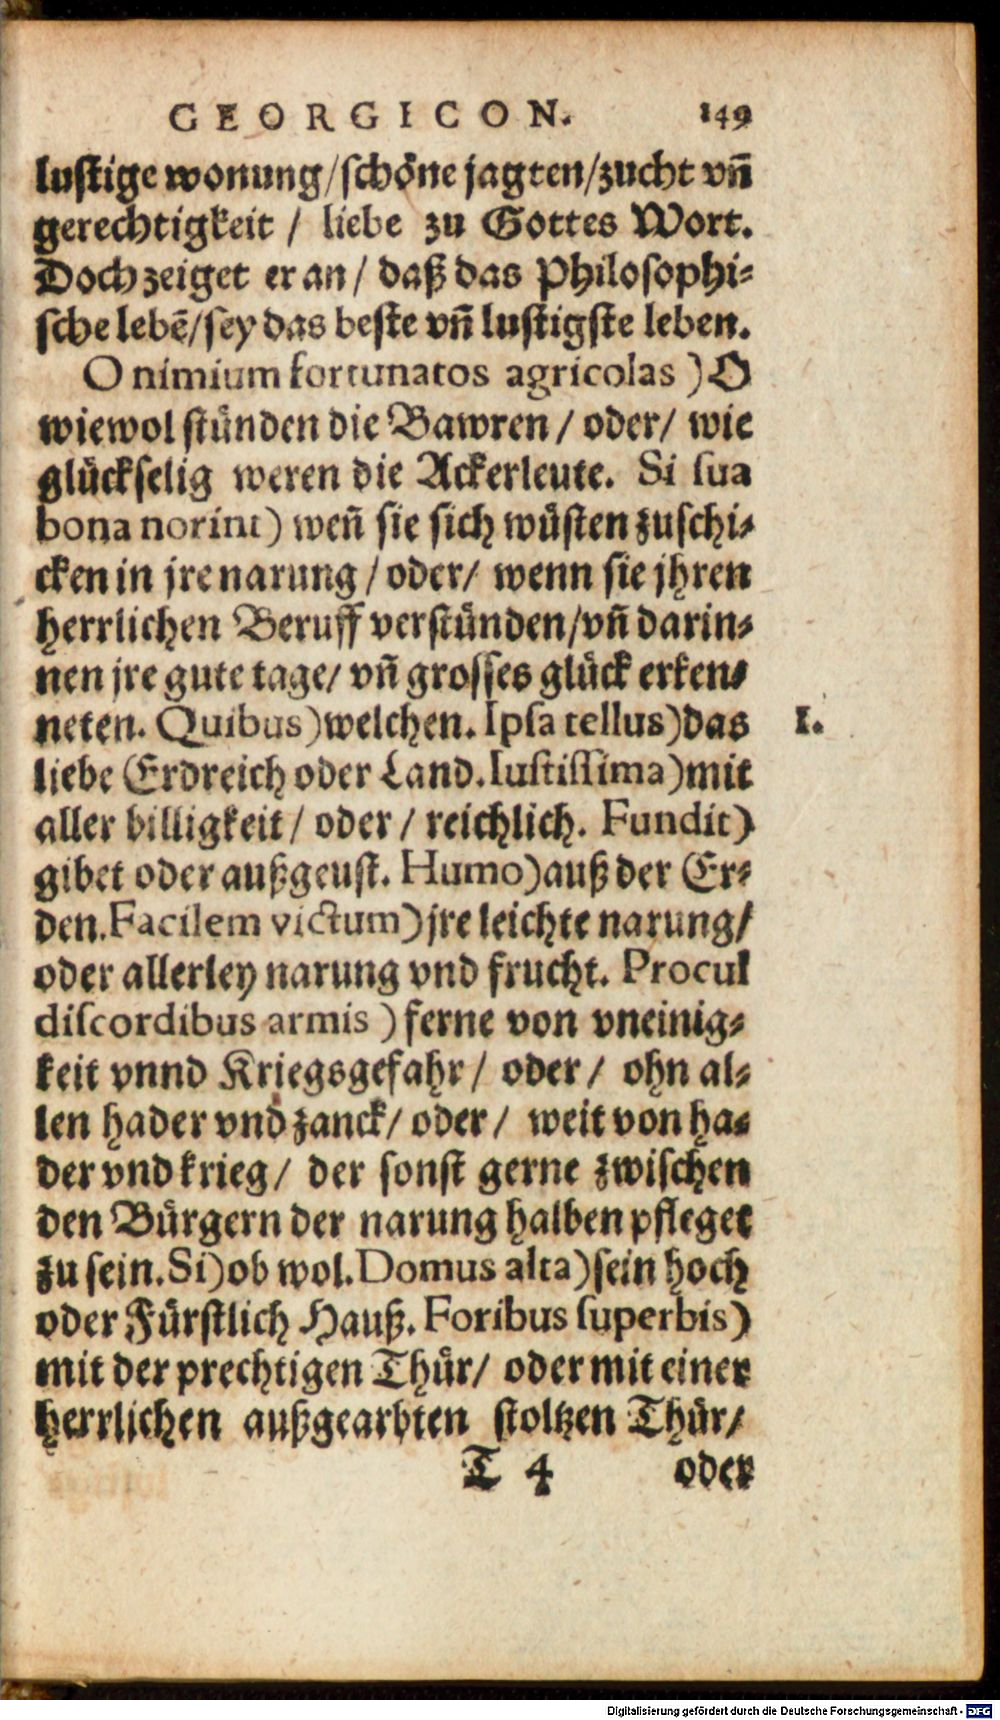 GEORGICON. 149
lustige wonung/schöne jagten/zucht vñ
gerechtigkeit / liebe zu Gottes Wort.
Doch zeiget er an / daß das Philosophi⸗
sche lebẽ/sey das beste vñ lustigste leben.
O nimium fortunatos agricolas ) O
wiewol stünden die Bawren / oder/ wie
glückselig weren die Ackerleute. Si sua
bona norint) weñ sie sich wüsten zuschi⸗
cken in jre narung / oder/ wenn sie jhren
herrlichen Beruff verstünden/vñ darin⸗
nen jre gute tage/ vñ grosses glück erken⸗
neten. Quibus) welchen. Ipsa tellus) das I.
liebe Erdreich oder Land. Iustissima) mit
aller billigkeit / oder / reichlich. Fundit)
gibet oder außgeust. Humo) auß der Er⸗
den. Facilem victum) jre leichte narung/
oder allerley narung vnd frucht. Procul
discordibus armis ) ferne von vneinig⸗
keit vnnd Kriegsgefahr / oder / ohn al⸗
len hader vnd zanck/ oder / weit von ha⸗
der vnd krieg/ der sonst gerne zwischen
den Bürgern der narung halben pfleget
zu sein. Si) ob wol. Domus alta) sein hoch
oder Fürstlich Hauß. Foribus superbis)
mit der prechtigen Thür/ oder mit einer
herrlichen außgearbten stoltzen Thür/
T 4 oder
Digitalisierung gefördert durch die Deutsche Forschungsgemeinschaft - DFG